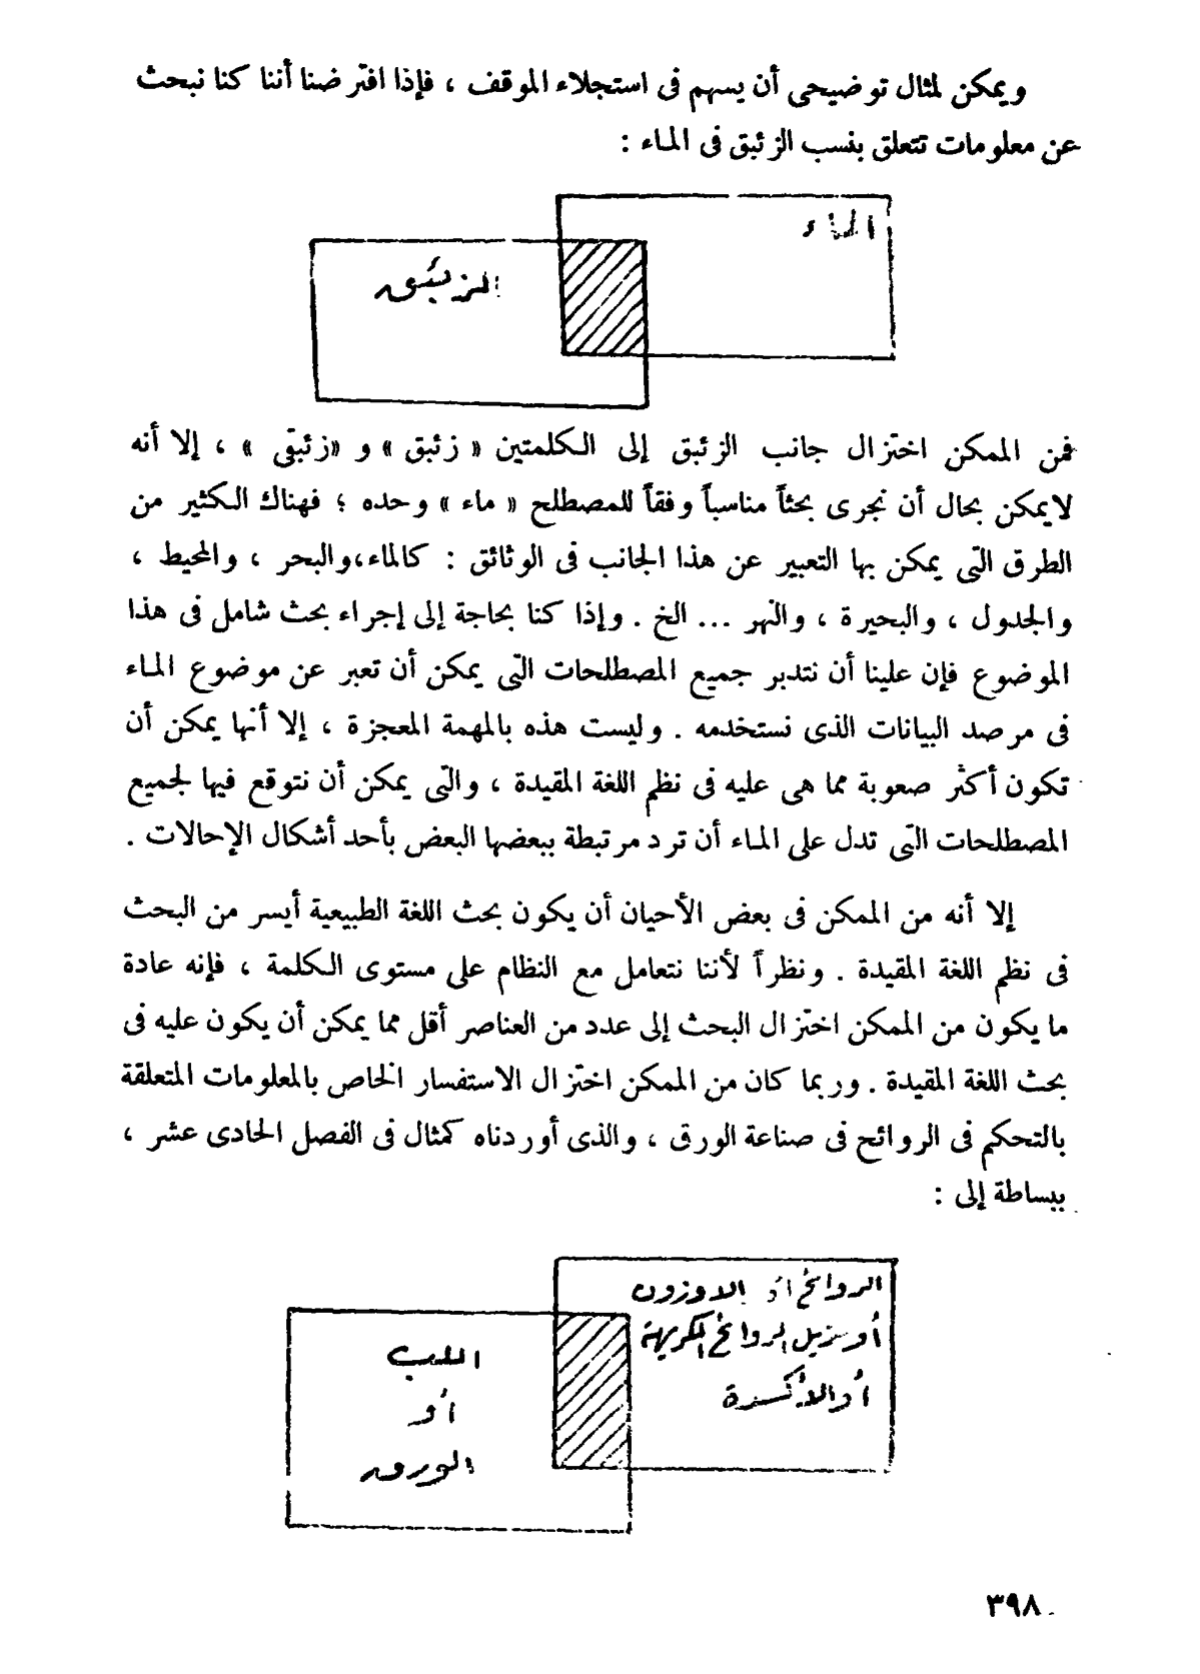 ويمكن لمثال توضيحى أن يسهم فى استجلاء الموقف ، فإذا افترضنا أننا كنا نبحث
عن معلومات تتعلق بنسب الزئبق فى الماء :
الماء
الزئبق
فمن الممكن اختزال جانب الزئبق إلى الكلمتين « زئبق » و «زئبقى » ، إلا أنه
لايمكن بحال أن نجرى بحثاً مناسباً وفقاً للمصطلح « ماء » وحده ؛ فهناك الكثير من
الطرق التى يمكن بها التعبير عن هذا الجانب فى الوثائق : كالماء،والبحر ، والمحيط ،
والجدول ، والبحيرة ، والنهر ... الخ . وإذا كنا بحاجة إلى إجراء بحث شامل فى هذا
الموضوع فإن علينا أن نتدبر جميع المصطلحات التى يمكن أن تعبر عن موضوع الماء
فى مرصد البيانات الذى نستخدمه . وليست هذه بالمهمة المعجزة ، إلا أنها يمكن أن
تكون أكثر صعوبة مما هى عليه فى نظم اللغة المقيدة ، والتى يمكن أن نتوقع فيها لجميع
المصطلحات التى تدل على الماء أن ترد مرتبطة ببعضها البعض بأحد أشكال الإحالات .
إلا أنه من الممكن فى بعض الأحيان أن يكون بحث اللغة الطبيعية أيسر من البحث
فى نظم اللغة المقيدة . ونظراً لأننا نتعامل مع النظام على مستوى الكلمة ، فإنه عادة
ما يكون من الممكن اختزال البحث إلى عدد من العناصر أقل مما يمكن أن يكون عليه فى
بحث اللغة المقيدة . وربما كان من الممكن اختزال الاستفسار الخاص بالمعلومات المتعلقة
بالتحكم فى الروائح فى صناعة الورق ، والذى أوردناه كمثال فى الفصل الحادى عشر ،
ببساطة إلى :
الروائح أو الاوزون
أو مزيل الروائح الكريهة
أو الأكسدة
اللب
أو
الورق
٣٩٨